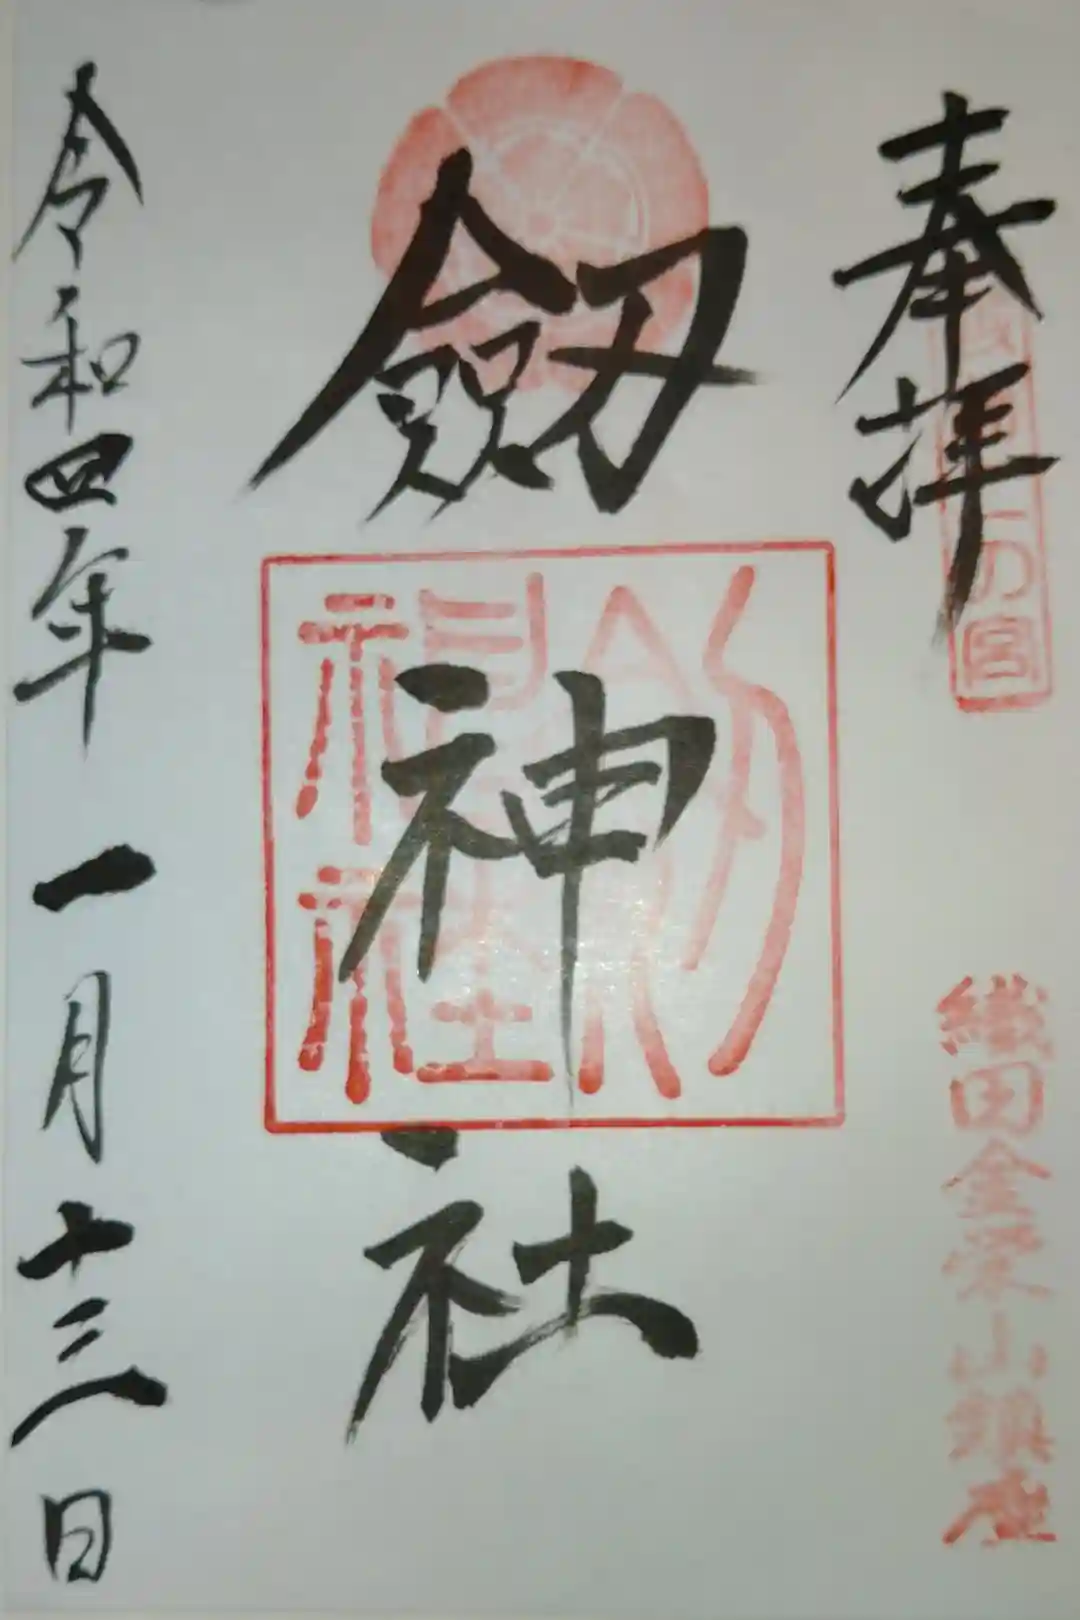 奉拝
二の宮
織田金栄山鎮座
劔神社
劔神社
令和四年一月十三日